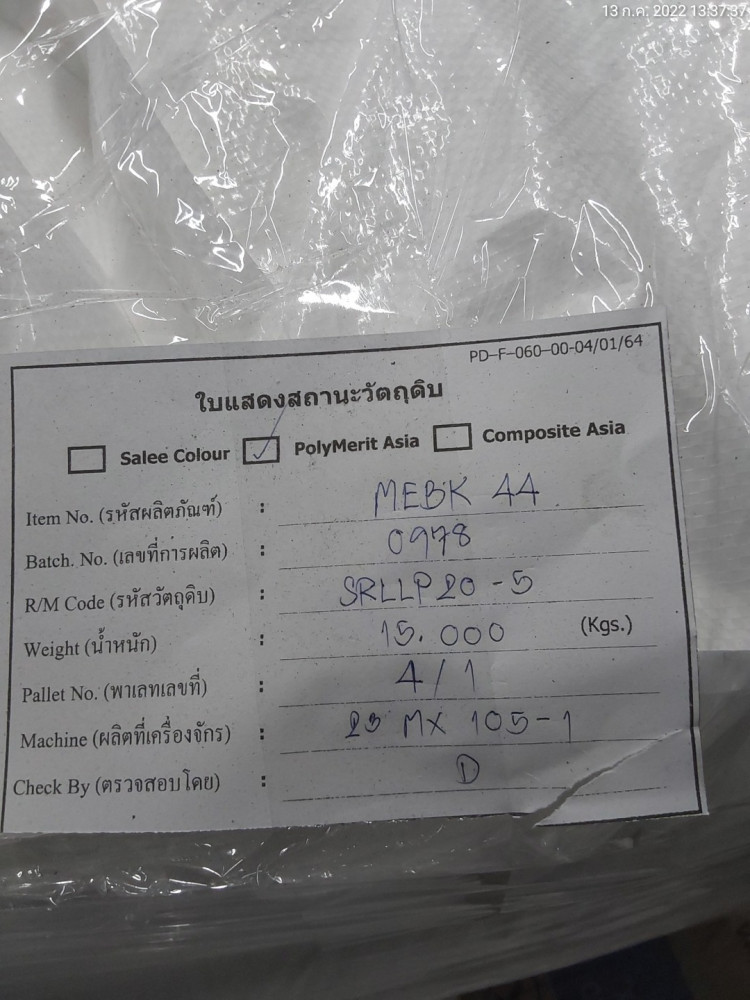 13 ก.ค. 2022 13:37:37
PD-F-060-00-04/01/64
ใบแสดงสถานะวัตถุดิบ
Salee Colour PolyMerit Asia Composite Asia
Item No. (รหัสผลิตภัณฑ์) : MEBK 44
Batch. No. (เลขที่การผลิต) : 0978
R/M Code (รหัสวัตถุดิบ) : SRLLP20-5
Weight (น้ำหนัก) : 15.000 (Kgs.)
Pallet No. (พาเลทเลขที่) : 4/1
Machine (ผลิตที่เครื่องจักร) : MX 105-1
Check By (ตรวจสอบโดย) : D